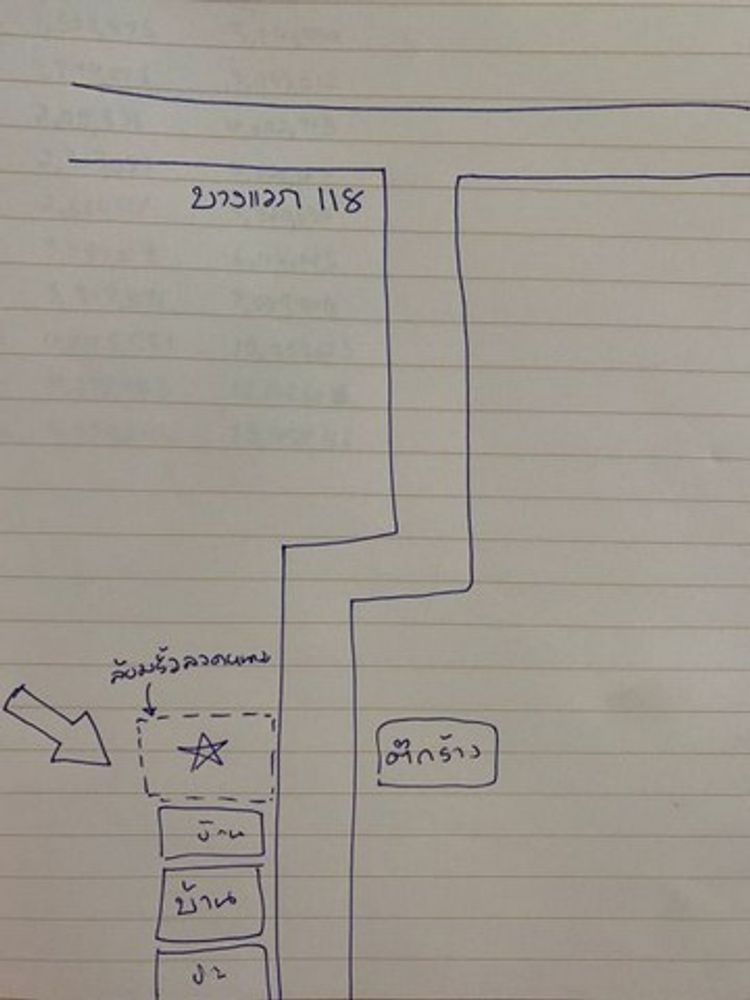 บางแวก 118
ล้อมรั้วลวดหนาม
ตึกร้าง
บ้าน
บ้าน